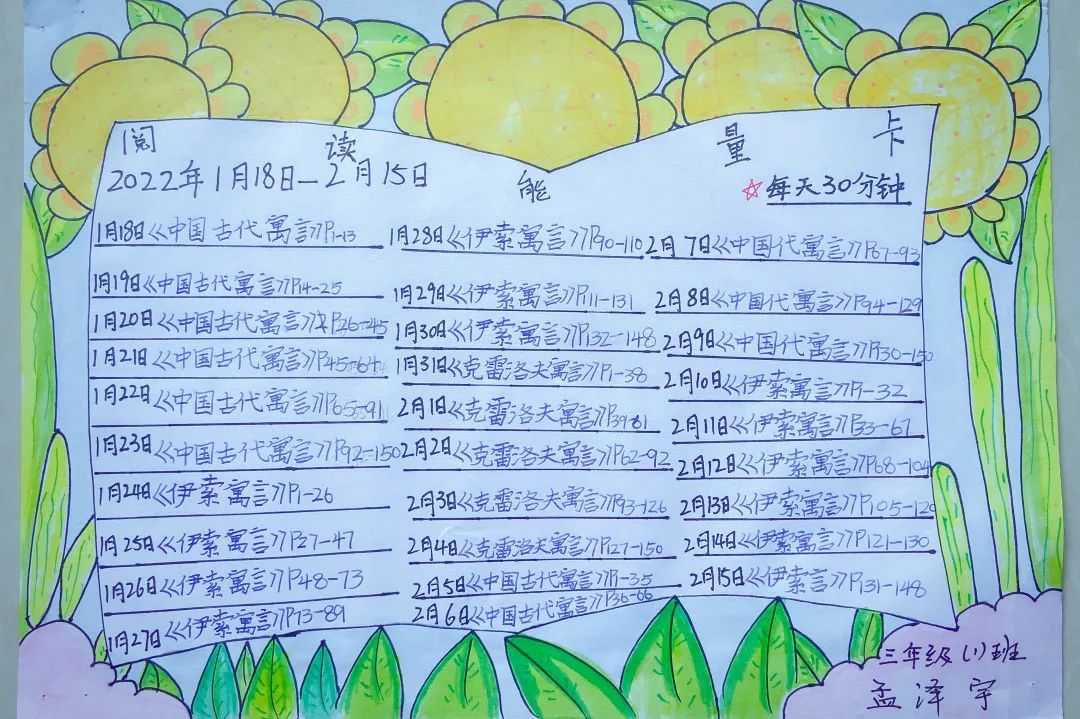 阅读能量卡
2022年1月18日—2月15日
☆每天30分钟
1月18日《中国古代寓言》P1-13
1月19日《中国古代寓言》P14-25
1月20日《中国古代寓言》P26-45
1月21日《中国古代寓言》P45-64
1月22日《中国古代寓言》P65-91
1月23日《中国古代寓言》P92-150
1月24日《伊索寓言》P1-26
1月25日《伊索寓言》P27-47
1月26日《伊索寓言》P48-73
1月27日《伊索寓言》P73-89
1月28日《伊索寓言》P90-110
1月29日《伊索寓言》P111-131
1月30日《伊索寓言》P132-148
1月31日《克雷洛夫寓言》P1-38
2月1日《克雷洛夫寓言》P39-61
2月2日《克雷洛夫寓言》P62-92
2月3日《克雷洛夫寓言》P93-126
2月4日《克雷洛夫寓言》P127-150
2月5日《中国古代寓言》P1-35
2月6日《中国古代寓言》P36-66
2月7日《中国代寓言》P67-93
2月8日《中国代寓言》P94-129
2月9日《中国代寓言》P130-150
2月10日《伊索寓言》P1-32
2月11日《伊索寓言》P33-67
2月12日《伊索寓言》P68-104
2月13日《伊索寓言》P105-120
2月14日《伊索寓言》P121-130
2月15日《伊索言》P131-148
三年级(1)班
孟泽宇